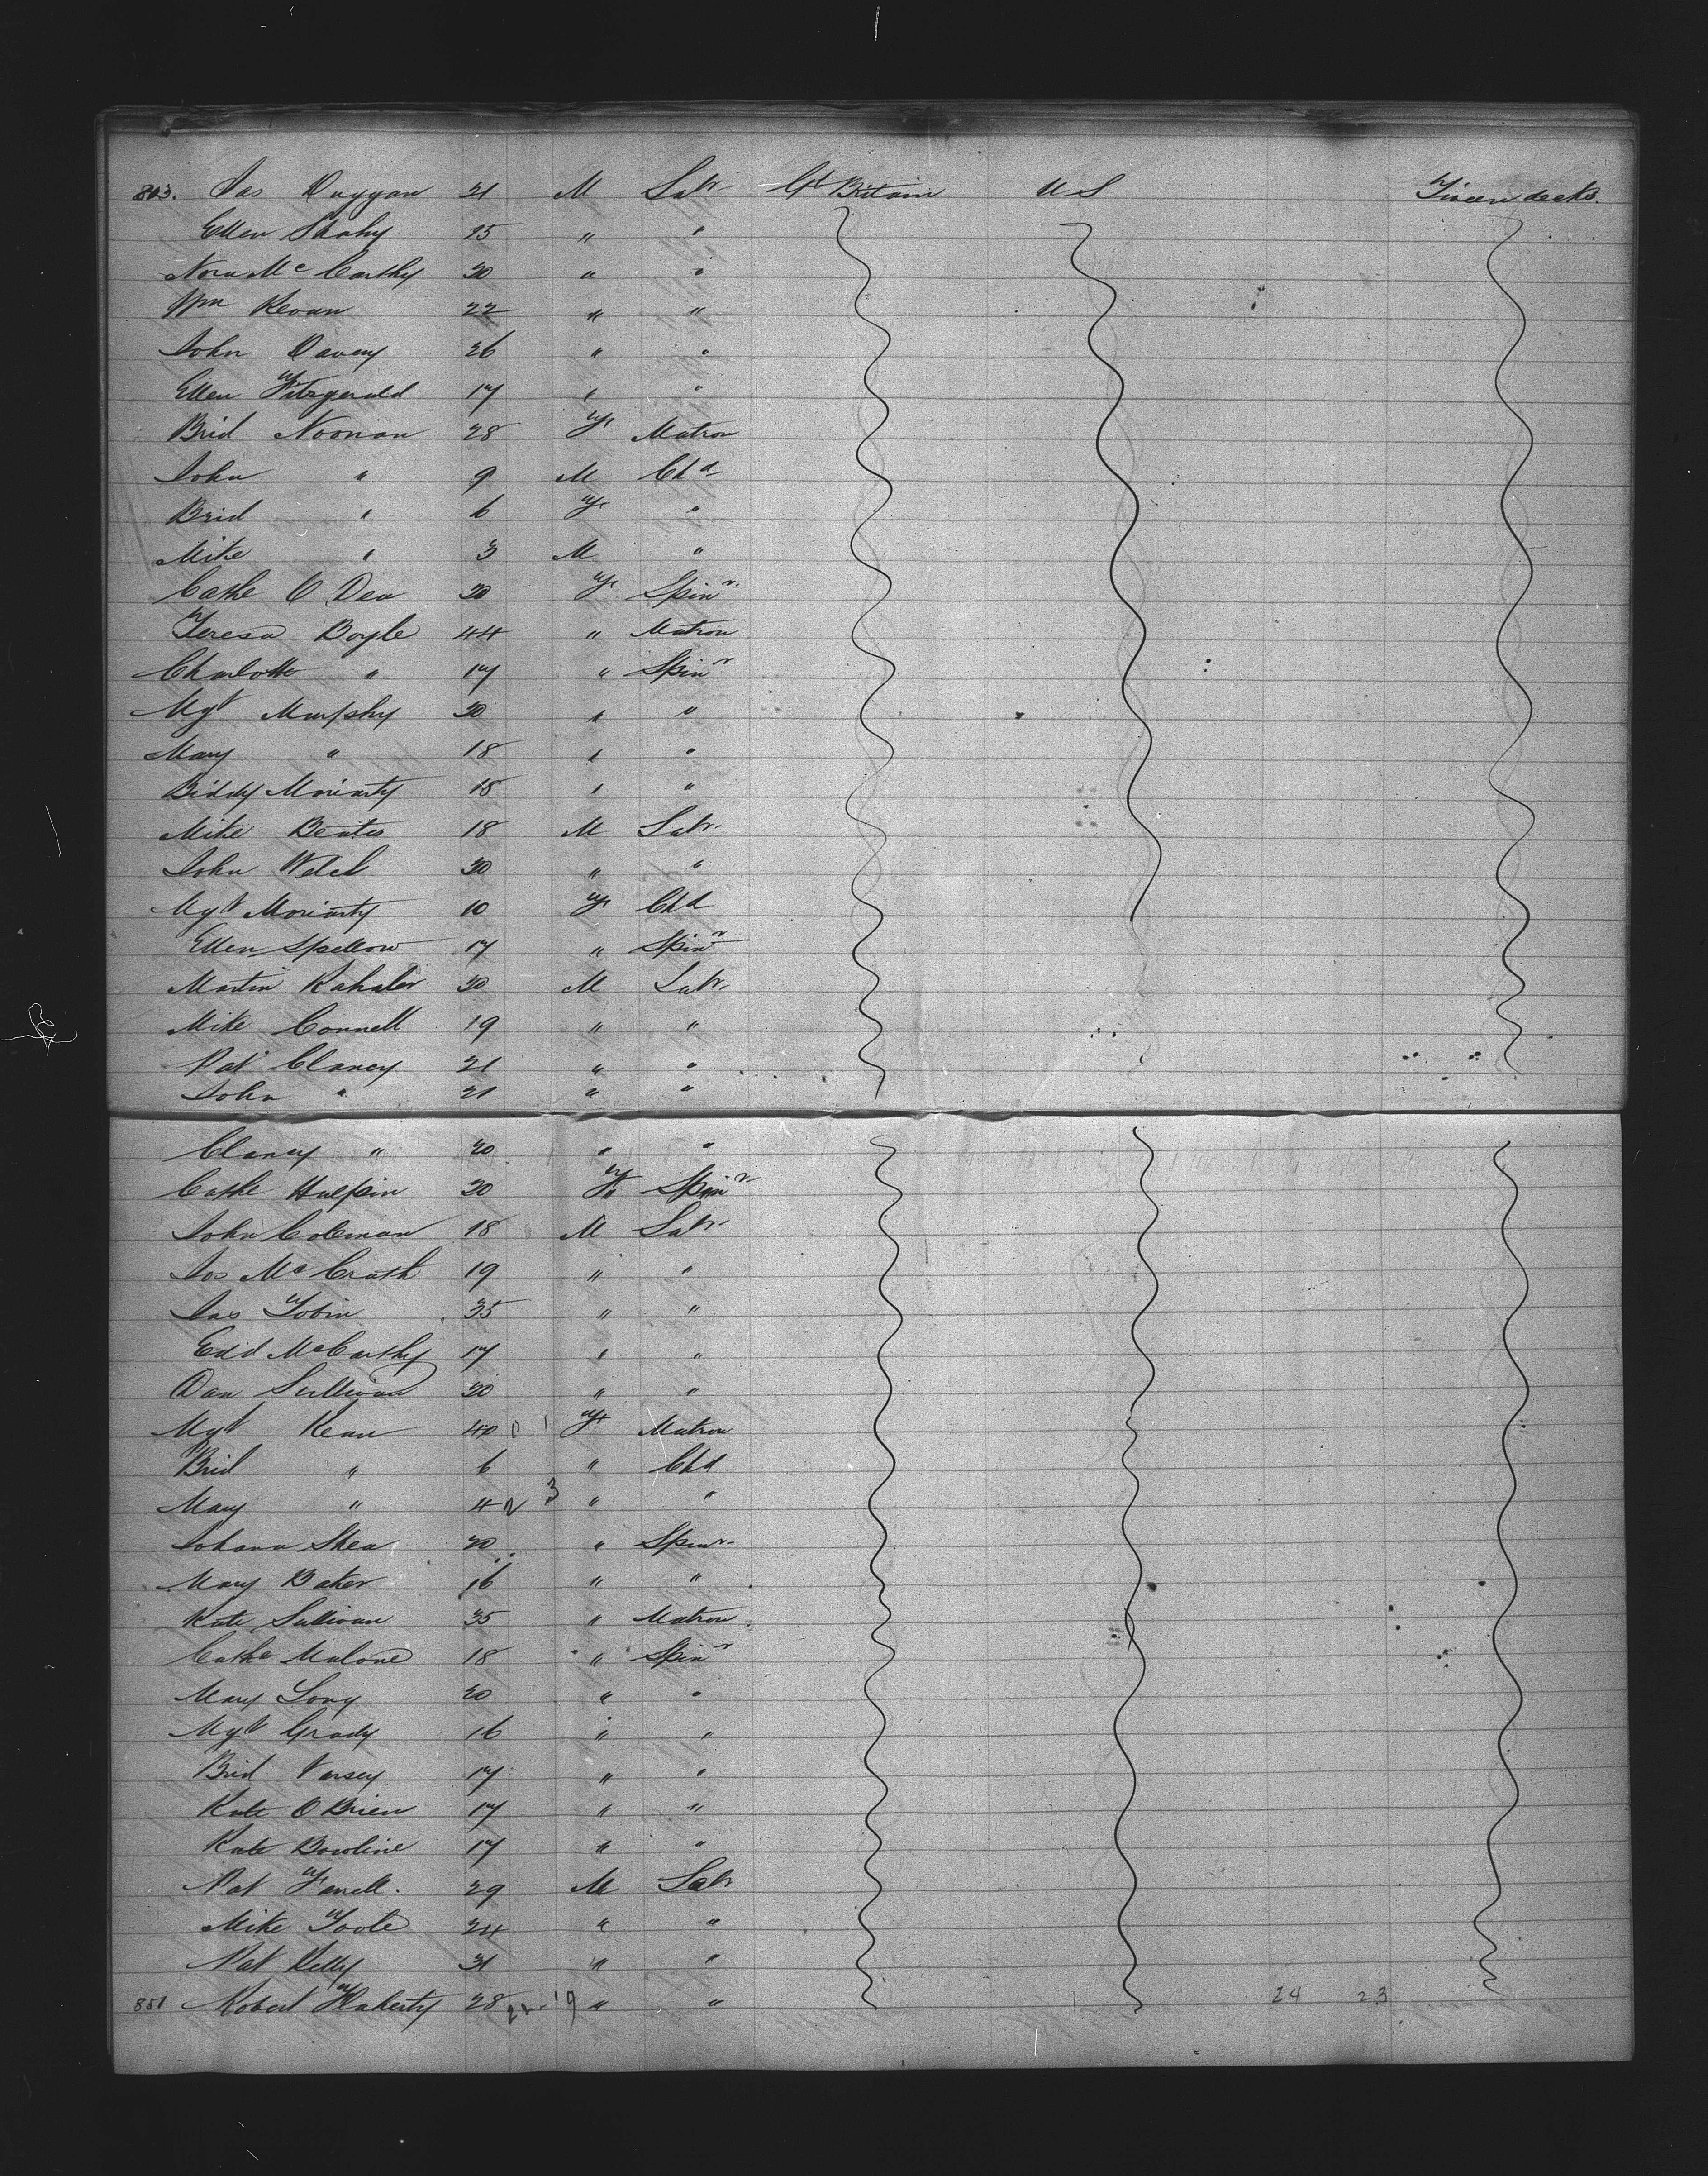 803. Jas Duggan 21 M Labr Gt Britain U S Tween decks.
Ellen Skahy 25 " "
Nora Mc Carthy 20 " "
Wm Keoun 22 " "
John Davey 26 " "
Ellen Fitzgerald 17 " "
Brid Noonan 28 F Matron
John " 9 M Chd
Brid " 6 F "
Mike " 3 M "
Cathe O Dea 20 F Spinr
Teresa Boyle 44 " Matron
Charlotte " 17 " Spinr
Mgt Murphy 20 " "
Mary " 18 " "
Biddy Moriarty 18 " "
Mike Beates 18 M Labr
John Welch 20 " "
Mgt Moriarty 10 F Chd
Ellen Spellow 17 " Spinr
Martin Kahaler 20 M Labr
Mike Connell 19 " "
Pat Clancy 21 " "
John " 21 " "
Clancy " 20 " "
Cathe Halpin 20 F Spinr
John Coleman 18 M Labr
Jos Mc Crath 19 " "
Jas Tobin 35 " "
Edd McCarthy 17 " "
Dan Sullivan 20 " "
Mgt Kean 40 F Matron
Brid " 6 " Chd
Mary " 4 2 3 " "
Johana Shea 20 " Spinr
Mary Baker 16 " "
Kate Sullivan 35 " Matron
Cathe Malone 18 " Spinr
Mary Long 20 " "
Mgt Grady 16 " "
Brid Varsey 17 " "
Kate O Brien 17 " "
Kate Bowline 17 " "
Pat Farrell. 29 M Labr
Mike Toole 24 " "
Pat Kelly 31 " "
851 Robert Flaherty 28 " " 24 23